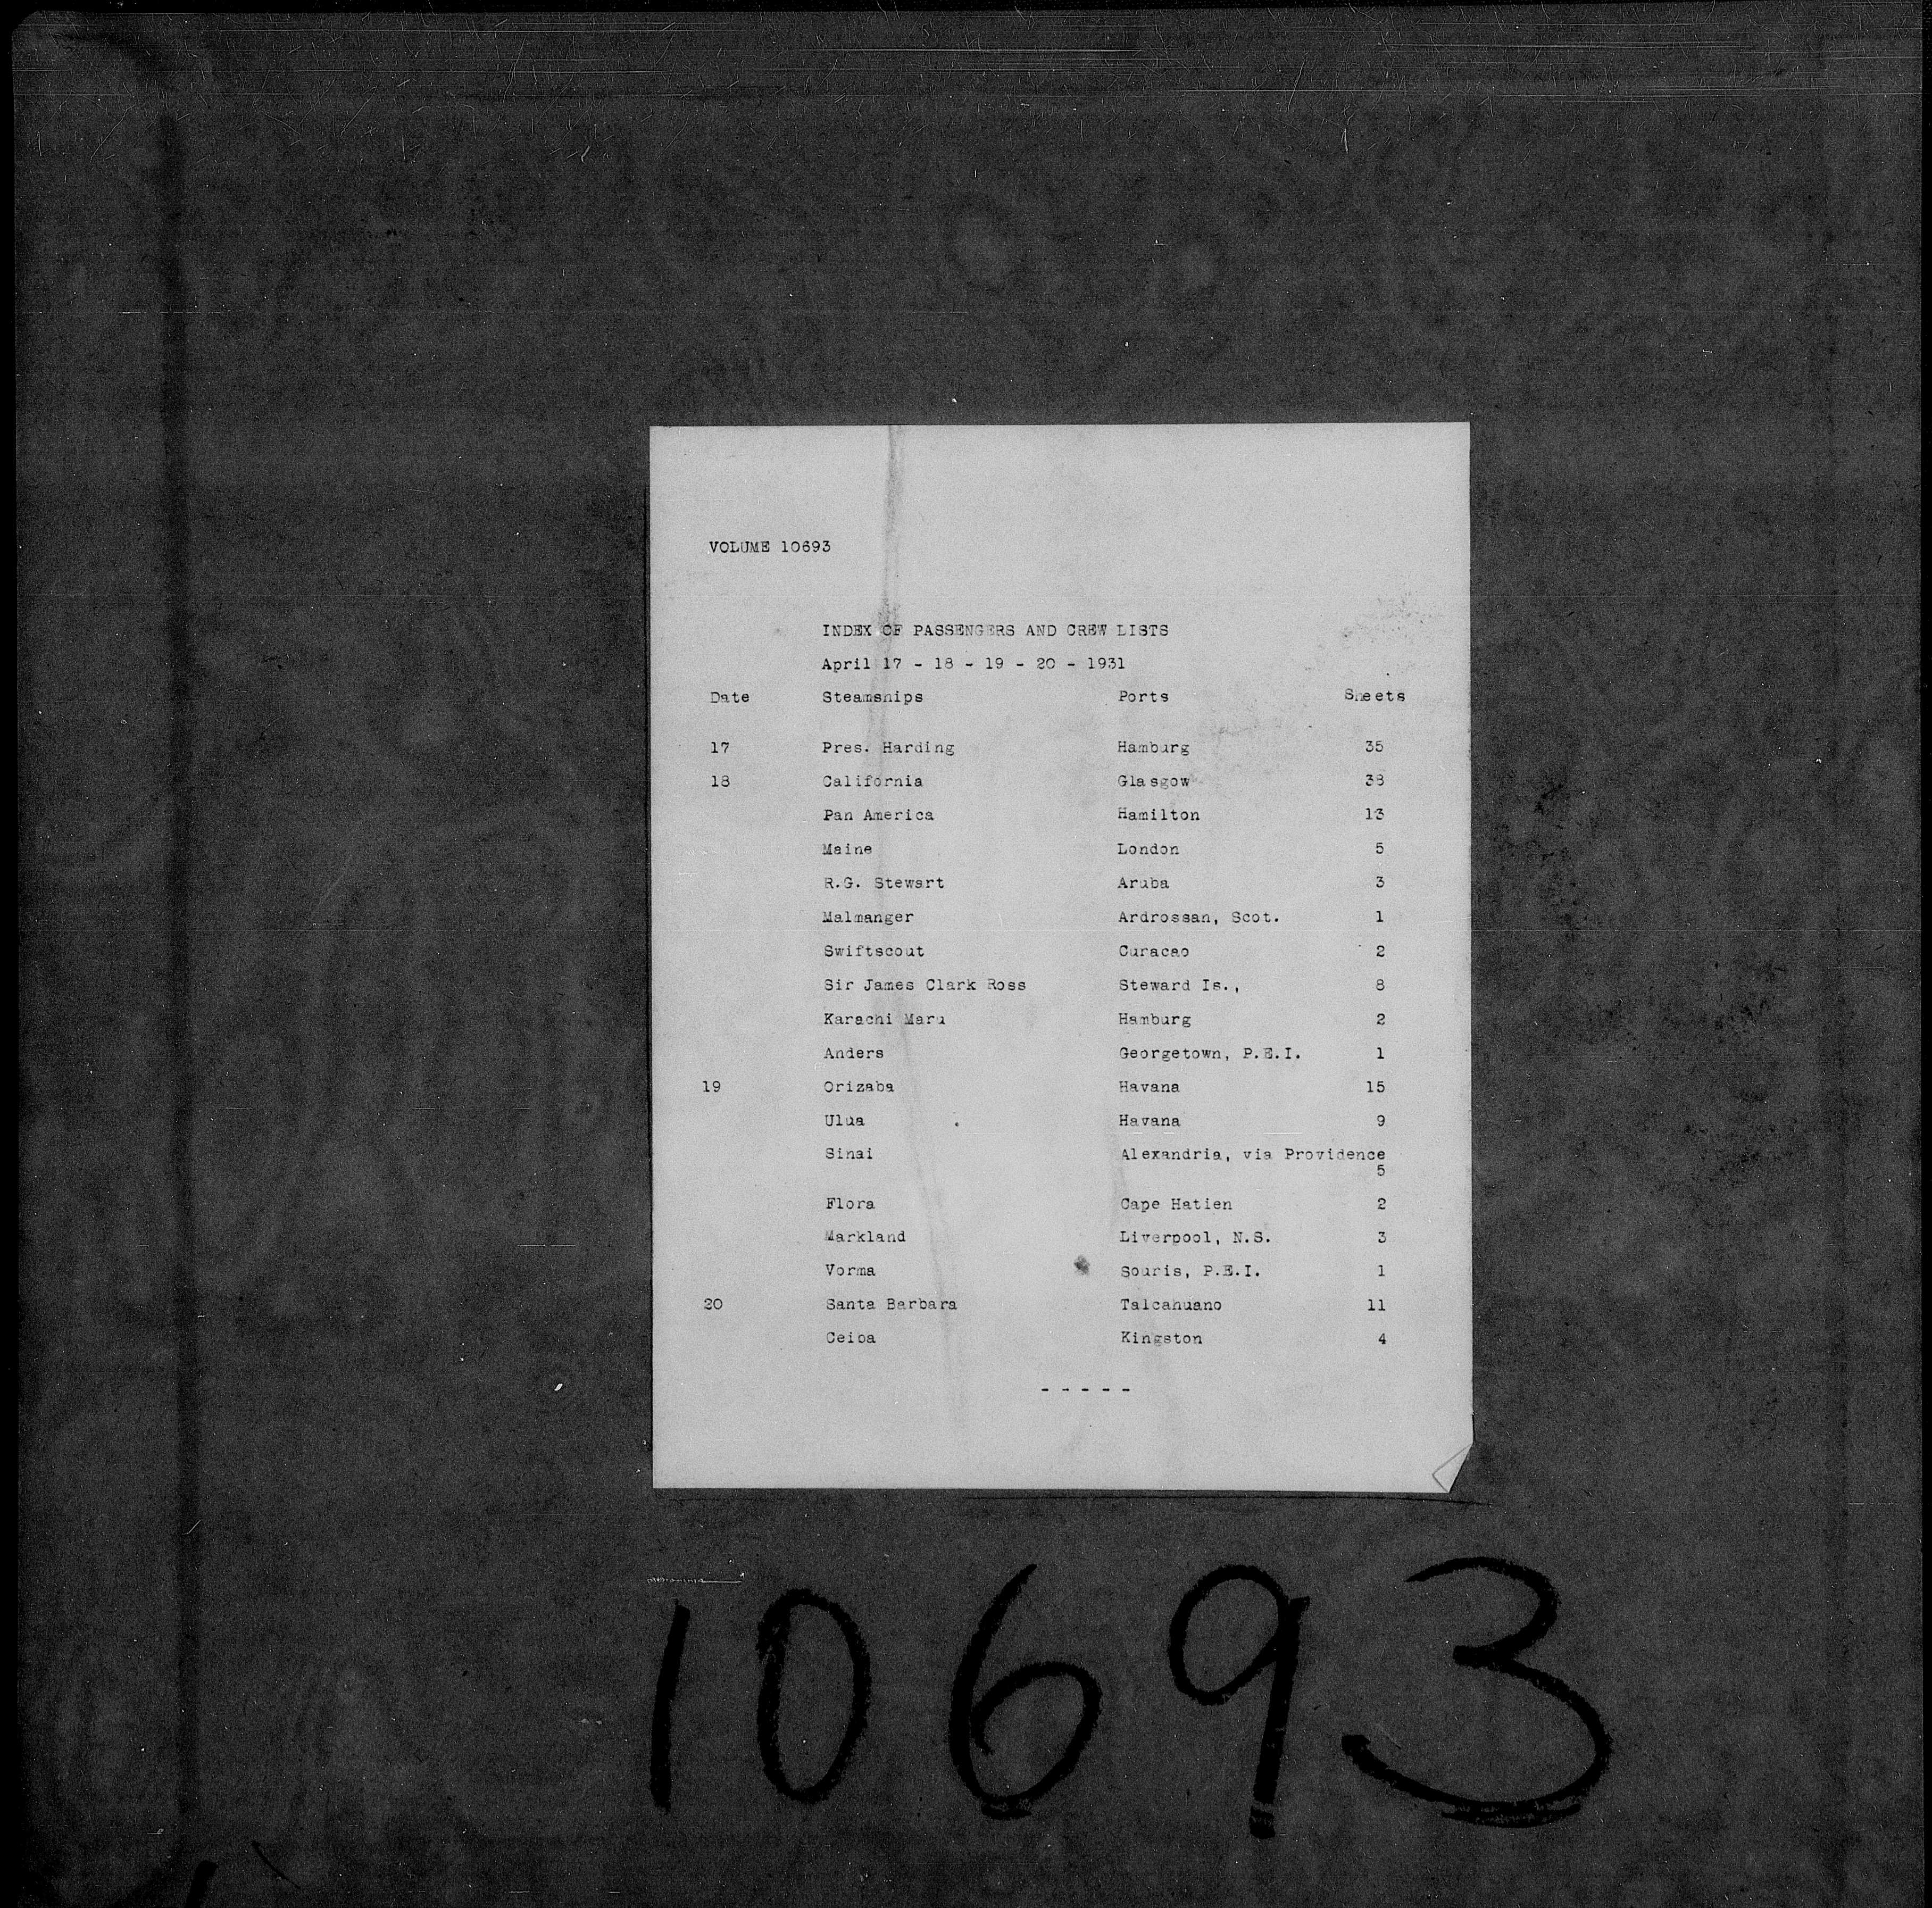 VOLUME 10693
INDEX OF PASSENGERS AND CREW LISTS
April 17 - 18 - 19 - 20 - 1931
Date Steamships Ports Sheets
17 Pres. Harding Hamburg 35
18 California Glasgow 38
Pan America Hamilton 13
Maine London 5
R.G. Stewart Aruba 3
Malmanger Ardrossan, Scot. 1
Swiftscout Curacao 2
Sir James Clark Ross Steward Is., 8
Karachi Maru Hamburg 2
Anders Georgetown, P.E.I. 1
19 Orizaba Havana 15
Ulua Havana 9
Sinai Alexandria, via Providence
5
Flora Cape Hatien 2
Markland Liverpool, N.S. 3
Vorma Souris, P.E.I. 1
20 Santa Barbara Talcahuano 11
Ceiba Kingston 4
- - - - -
10693